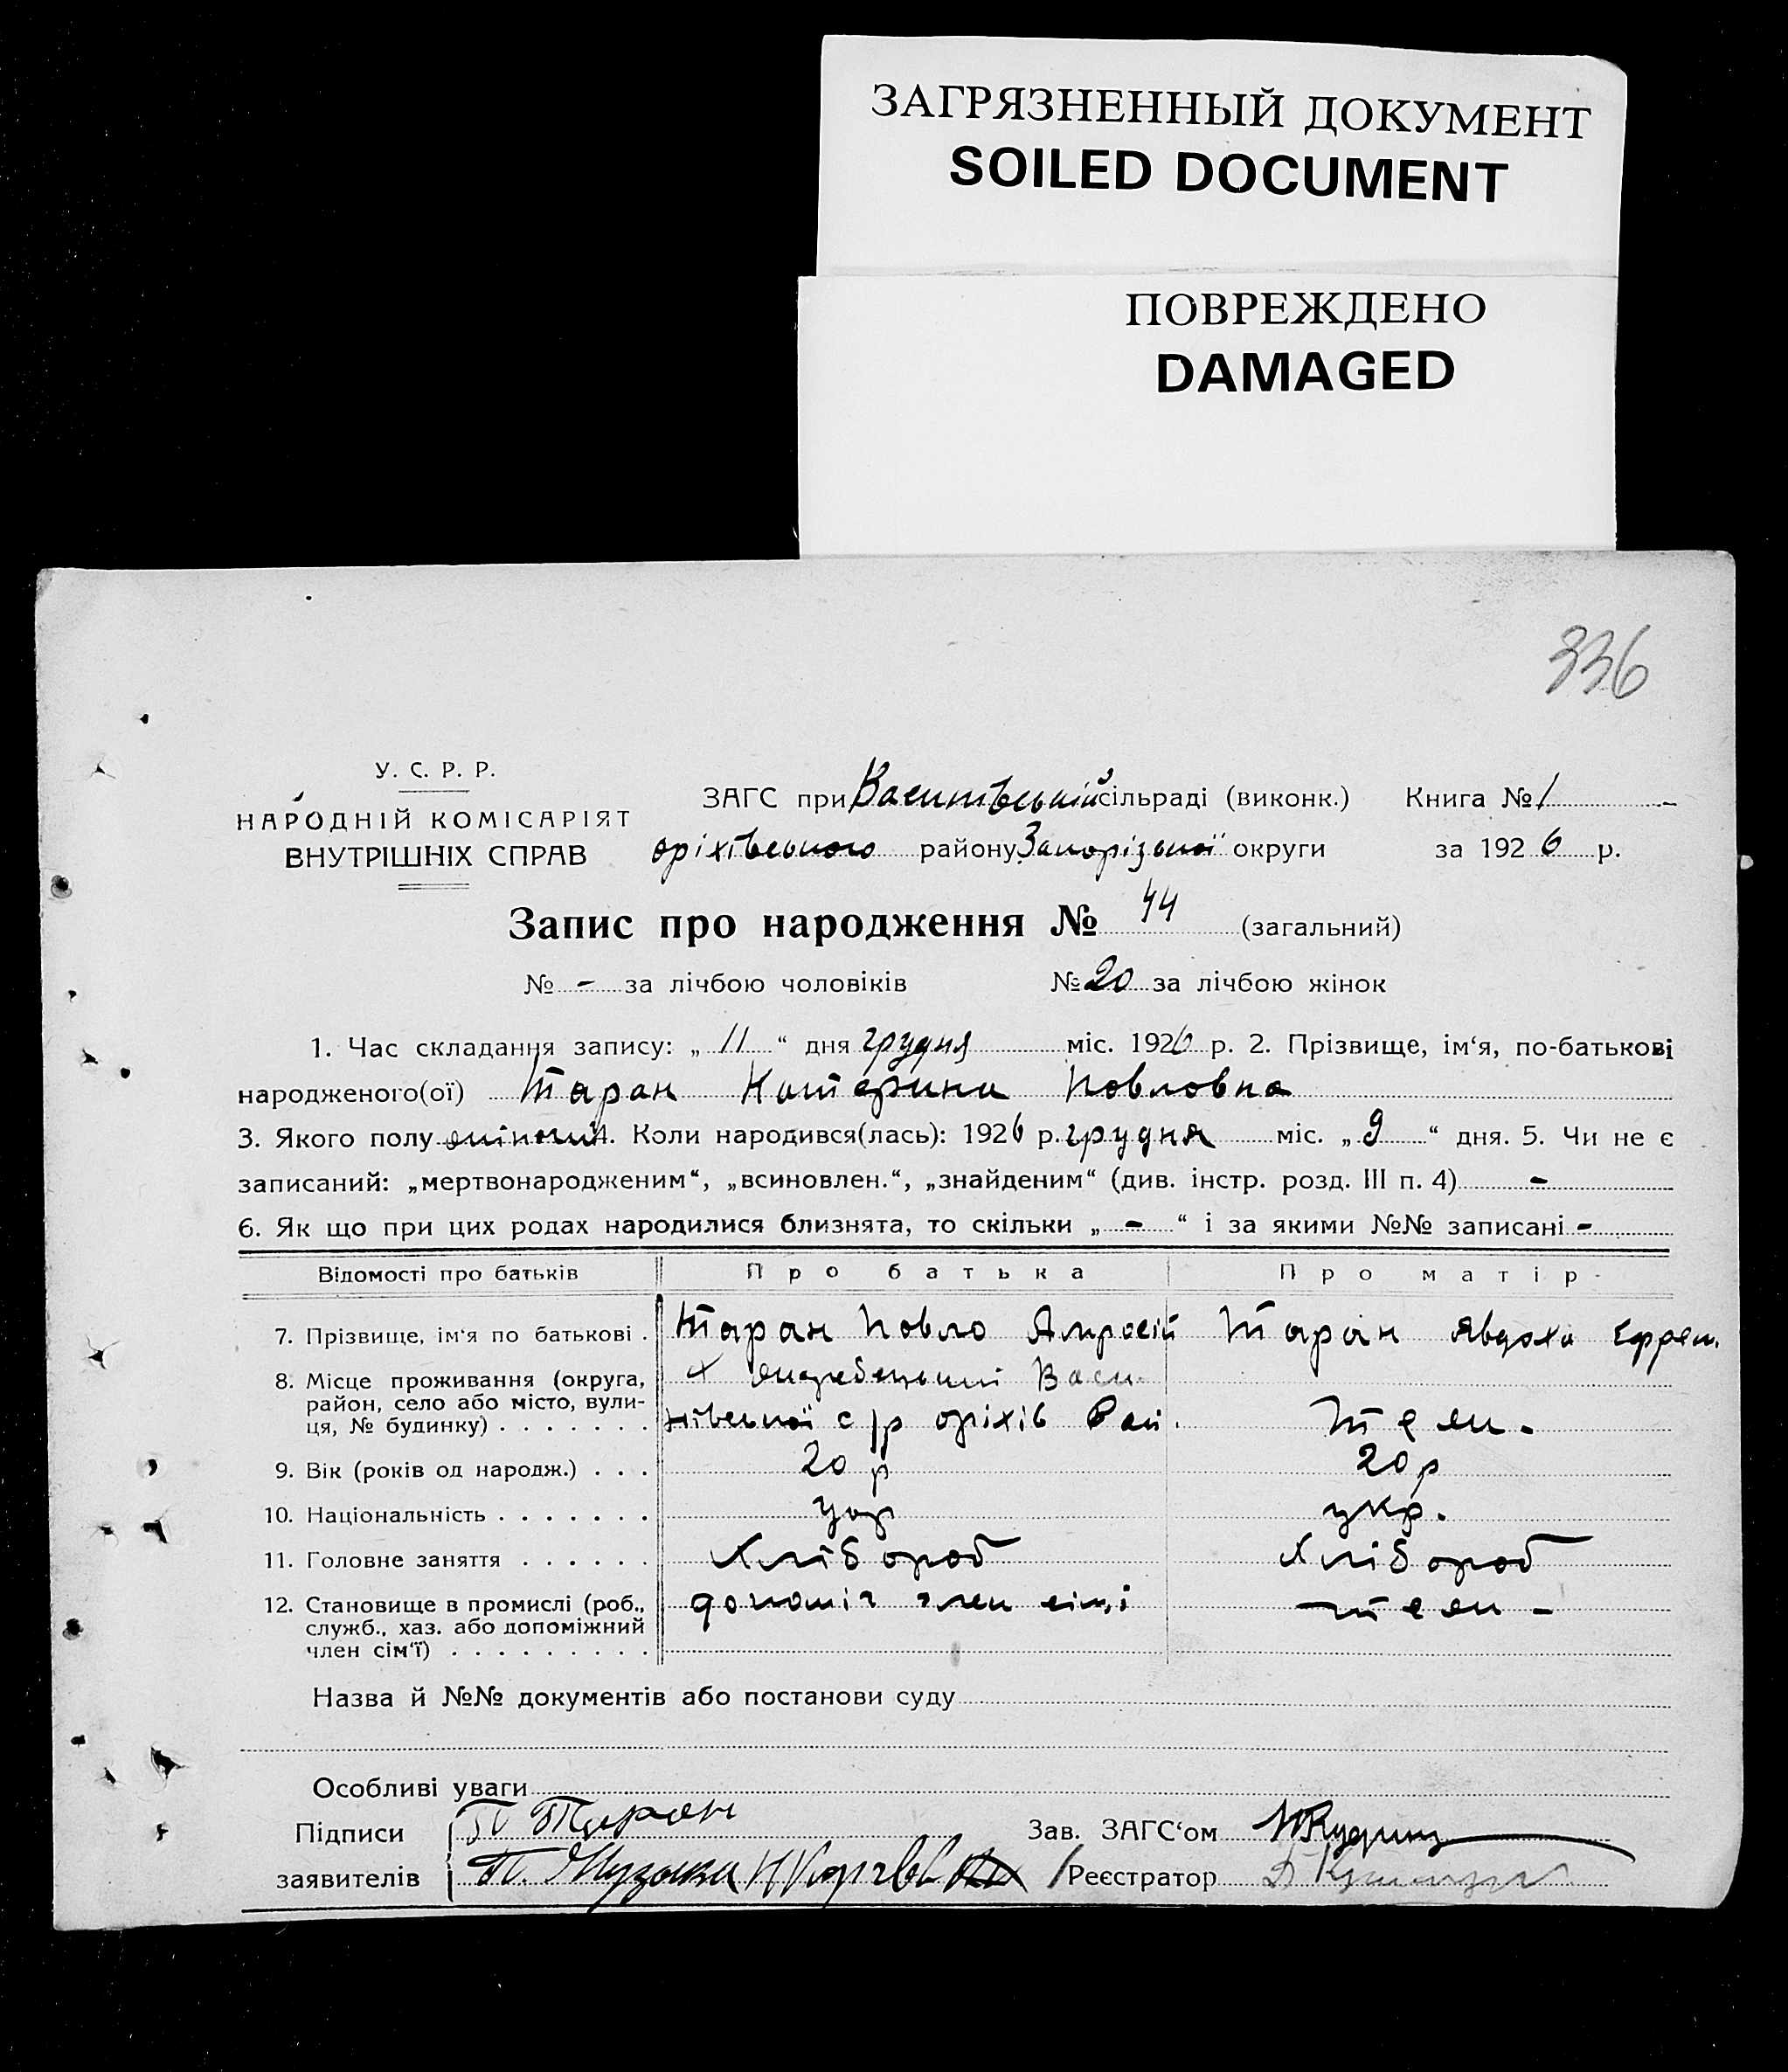 ЗАГРЯЗНЕННЫЙ ДОКУМЕНТ
SOILED DOCUMENT
ПОВРЕЖДЕНО
DAMAGED
336
У. С. Р. Р.
НАРОДНІЙ КОМІСАРІЯТ
ВНУТРІШНІХ СПРАВ
ЗАГС при сільраді (виконк.) Книга № 1
оріхівського району Запорізької округи за 1926 р.
Запис про народження № 44 (загальний)
№ - за лічбою чоловіків № 20 за лічбою жінок
1. Час складання запису: „ 11 “ дня грудня міс. 1926 р. 2. Прізвище, ім‘я, по-батькові
народженого(ої) Таран Катерина Павловна
3. Якого полу жіночий 4. Коли народився(лась): 1926 р. грудня міс. „ 9 “ дня. 5. Чи не є
записаний: „мертвонародженим“, „всиновлен.“, „знайденим“ (див. інстр. розд. III п. 4) -
6. Як що при цих родах народилися близнята, то скільки „ - “ і за якими №№ записані -
Відомості про батьків Про батька Про матір
7. Прізвище, ім‘я по батькові . Таран Павло Амросій Таран Явдоха Ефрем.
8. Місце проживання (округа,
район, село або місто, вули-
ця, № будинку) . . . . . . . с/р оріхів Рай. теж.
9. Вік (років од народж.) . . . 20 р 20 р
10. Національність . . . . . . . укр укр.
11. Головне заняття . . . . . . Хлібороб хлібороб
12. Становище в промислі (роб., допоміг член сімї теж -
служб., хаз. або допоміжний
член сім‘ї) . . . . . . . . .
Назва й №№ документів або постанови суду
Особливі уваги
Підписи П Таран Зав. ЗАГС‘ом
заявителів П. Музыка Реєстратор